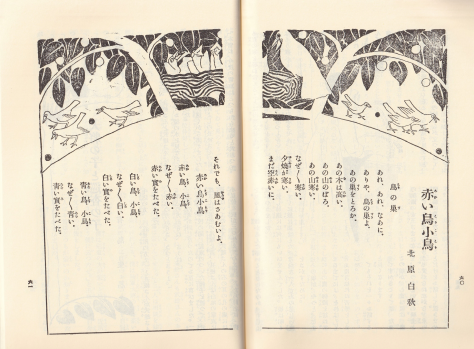 赤い鳥小鳥
北原白秋
鳥の巣
あれ、あれ、なあに、
ありや、鳥の巣よ、
あの巣をとろか、
あの木は高い。
あの山のぼろ、
あの山寒い、
なぜ〳〵寒い、
夕焼が寒い、
まだ空赤いに。
六〇
それでも、風はさあむいよ。
赤い鳥小鳥
赤い鳥、小鳥、
なぜ〳〵赤い、
赤い實をたべた。
白い鳥、小鳥、
なぜ〳〵白い、
白い實をたべた。
青い鳥、小鳥、
なぜ〳〵青い、
青い實をたべた。
六一